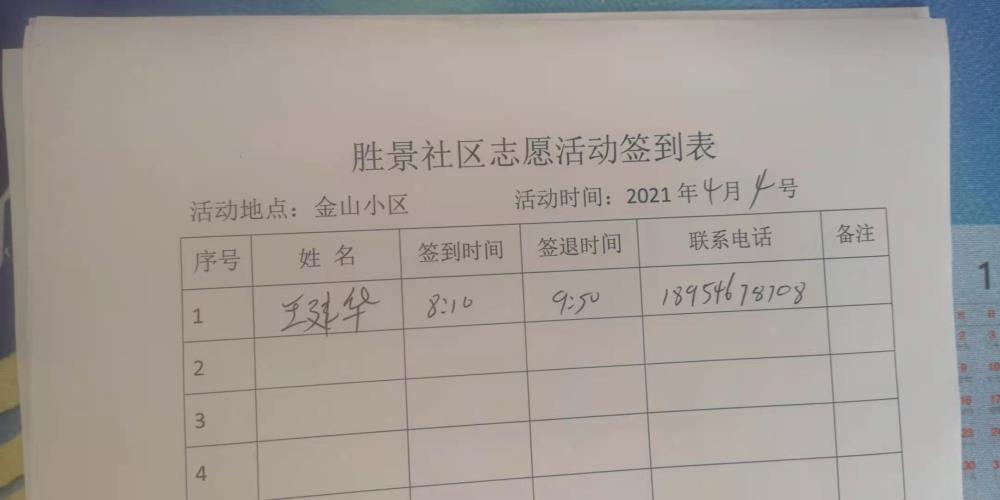 胜景社区志愿活动签到表
活动地点：金山小区 活动时间：2021年4月4号
序号 姓名 签到时间 签退时间 联系电话 备注
1 王建华 8:10 9:50 18954678708
2
3
4